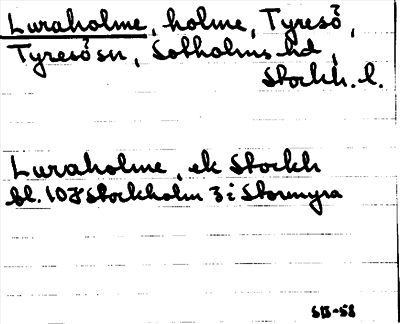 Luraholme, holme, Tyresö,
Tyresö sn, Sotholms hd,
Stockh. l.
Luraholme, ek Stockh
bl. 10J Stockholm 3 i Stormyra
SB-58